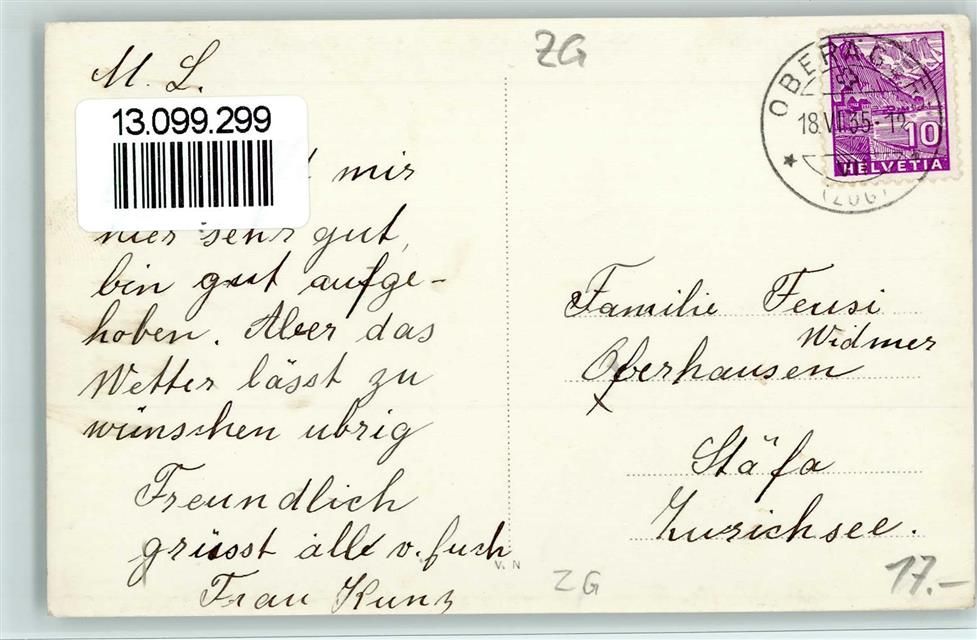 M. L.
13.099.299
mir
hier sehr gut,
bin gut aufge-
hoben. Aber das
Wetter lässt zu
wünschen ubrig
Freundlich
grüsst alle v.
Frau Kunz
V. N
ZG
ZG
17.-
OBERÄG
18.VII.35-12
(ZUG)
10
HELVETIA
Familie Feusi
Widmer
Oberhausen
Stäfa
Zurichsee.